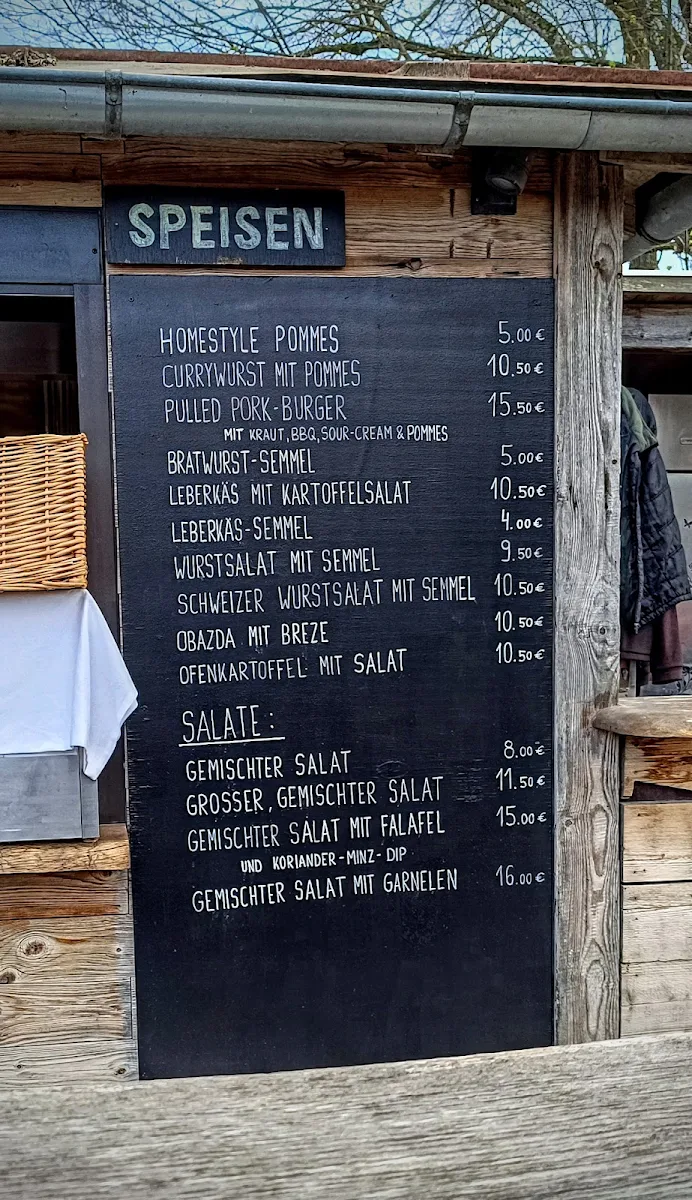 SPEISEN
HOMESTYLE POMMES 5.00 €
CURRYWURST MIT POMMES 10.50 €
PULLED PORK-BURGER 15.50 €
MIT KRAUT, BBQ, SOUR-CREAM & POMMES
BRATWURST-SEMMEL 5.00 €
LEBERKÄS MIT KARTOFFELSALAT 10.50 €
LEBERKÄS-SEMMEL 4.00 €
WURSTSALAT MIT SEMMEL 9.50 €
SCHWEIZER WURSTSALAT MIT SEMMEL 10.50 €
OBAZDA MIT BREZE 10.50 €
OFENKARTOFFEL MIT SALAT 10.50 €
SALATE:
GEMISCHTER SALAT 8.00 €
GROSSER, GEMISCHTER SALAT 11.50 €
GEMISCHTER SALAT MIT FALAFEL 15.00 €
UND KORIANDER-MINZ-DIP
GEMISCHTER SALAT MIT GARNELEN 16.00 €